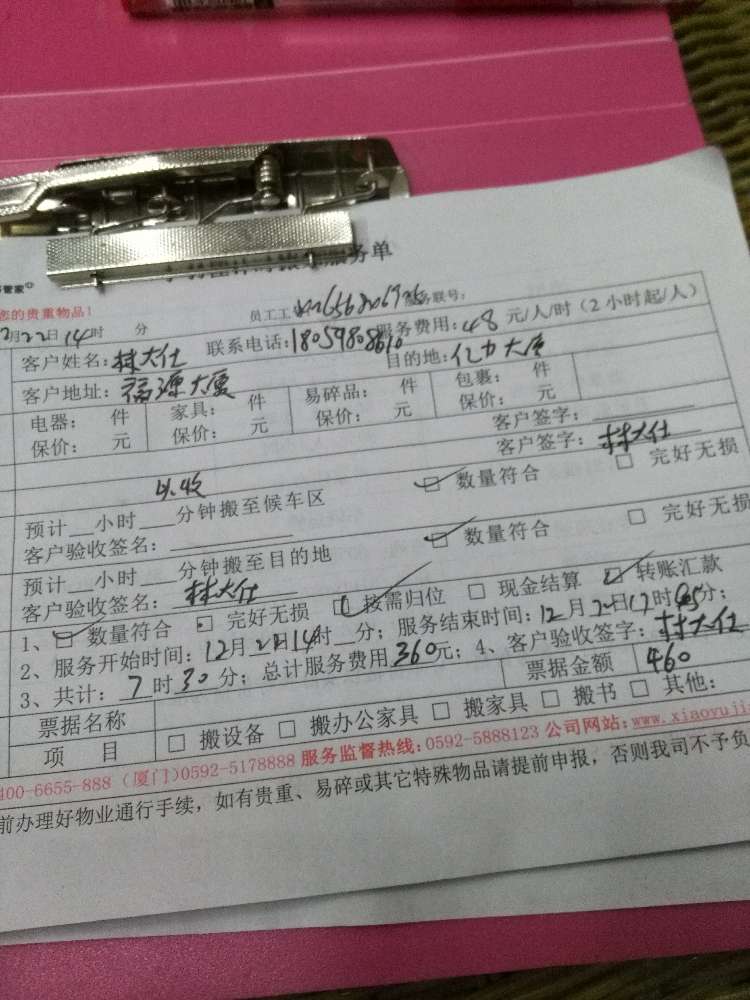 务单
管家
您的贵重物品！ 员工工 务联号：
月22日14时 分 联系电话：18059808610 服务费用：48元/人/时（2小时起/人）
客户姓名：林大仕 目的地：亿力大厦
客户地址：福源大厦
电器： 件 家具： 件 易碎品： 件 包裹： 件
保价： 元 保价： 元 保价： 元 保价： 元
客户签字：
客户签字：林大仕
预计 小时 分钟搬至候车区 数量符合 完好无损
客户验收签名：
预计 小时 分钟搬至目的地 数量符合 完好无损
客户验收签名：林大仕
1、数量符合 完好无损 按需归位 现金结算 转账汇款
2、服务开始时间：12月22日14时 分；服务结束时间：12月22日17时45分；
3、共计：7时30分；总计服务费用360元；4、客户验收签字：林大仕
票据名称 票据金额 460
项 目 搬设备 搬办公家具 搬家具 搬书 其他：
400-6655-888（厦门）0592-5178888 服务监督热线：0592-5888123 公司网站：www.xiaoyuji
前办理好物业通行手续，如有贵重、易碎或其它特殊物品请提前申报，否则我司不予负